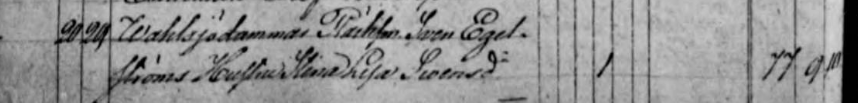 20 29 Wahlsjödammar Fräkten. Sven Egel-
ströms Hustru Stina Lisa Svensdr 1 77 9